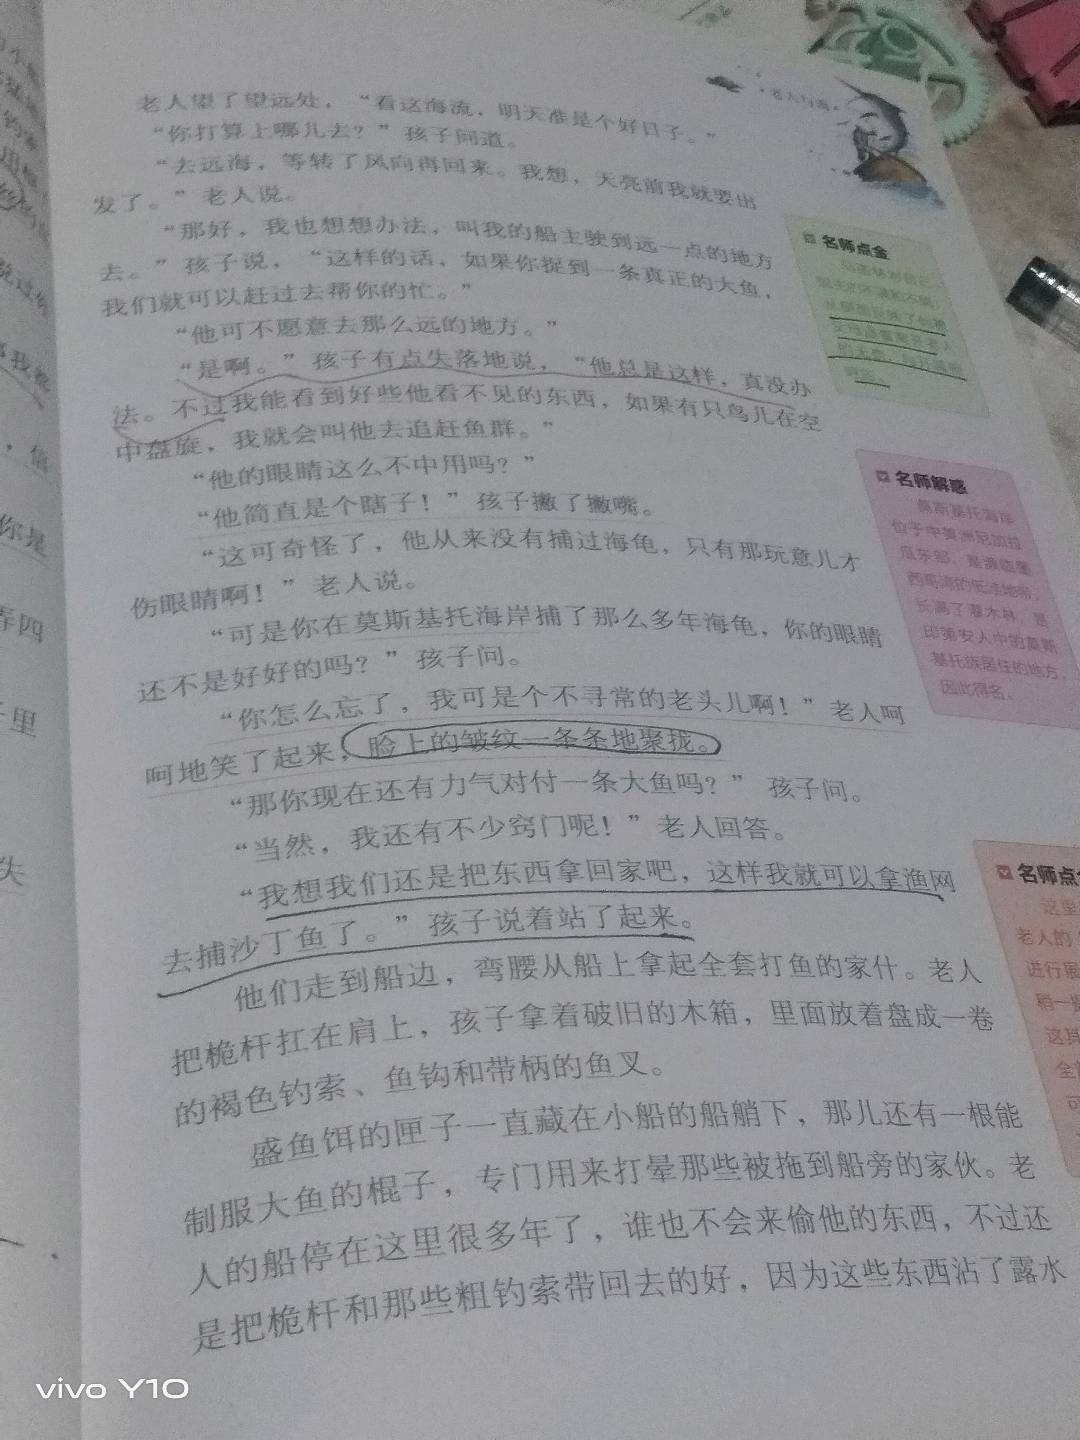 ·老人与海·
老人望了望远处，“看这海流，明天准是个好日子。”
“你打算上哪儿去？”孩子问道。
“去远海，等转了风向再回来。我想，天亮前我就要出
发了。”老人说。
“那好，我也想想办法，叫我的船主驶到远一点的地方
去。”孩子说，“这样的话，如果你捉到一条真正的大鱼，
我们就可以赶过去帮你的忙。”
“他可不愿意去那么远的地方。”
“是啊。”孩子有点失落地说，“他总是这样，真没办
法。不过我能看到好些他看不见的东西，如果有只鸟儿在空
中盘旋，我就会叫他去追赶鱼群。”
“他的眼睛这么不中用吗？”
“他简直是个瞎子！”孩子撇了撇嘴。
“这可奇怪了，他从来没有捕过海龟，只有那玩意儿才
伤眼睛啊！”老人说。
“可是你在莫斯基托海岸捕了那么多年海龟，你的眼睛
还不是好好的吗？”孩子问。
“你怎么忘了，我可是个不寻常的老头儿啊！”老人呵
呵地笑了起来，脸上的皱纹一条条地聚拢。
“那你现在还有力气对付一条大鱼吗？”孩子问。
“当然，我还有不少窍门呢！”老人回答。
“我想我们还是把东西拿回家吧，这样我就可以拿渔网
去捕沙丁鱼了。”孩子说着站了起来。
他们走到船边，弯腰从船上拿起全套打鱼的家什。老人
把桅杆扛在肩上，孩子拿着破旧的木箱，里面放着盘成一卷
的褐色钓索、鱼钩和带柄的鱼叉。
盛鱼饵的匣子一直藏在小船的船艄下，那儿还有一根能
制服大鱼的棍子，专门用来打晕那些被拖到船旁的家伙。老
人的船停在这里很多年了，谁也不会来偷他的东西，不过还
是把桅杆和那些粗钓索带回去的好，因为这些东西沾了露水
名师点金
名师解惑
莫斯基托海岸
位于中美洲尼加拉
瓜东部，是濒临墨
西哥湾的低洼地带，
长满了灌木林，是
印第安人中的莫斯
基托族居住的地方，
因此得名。
名师点金
这里
老人的
进行展
稍一
这其
全
可
你是
弄四
里
失
vivo Y10